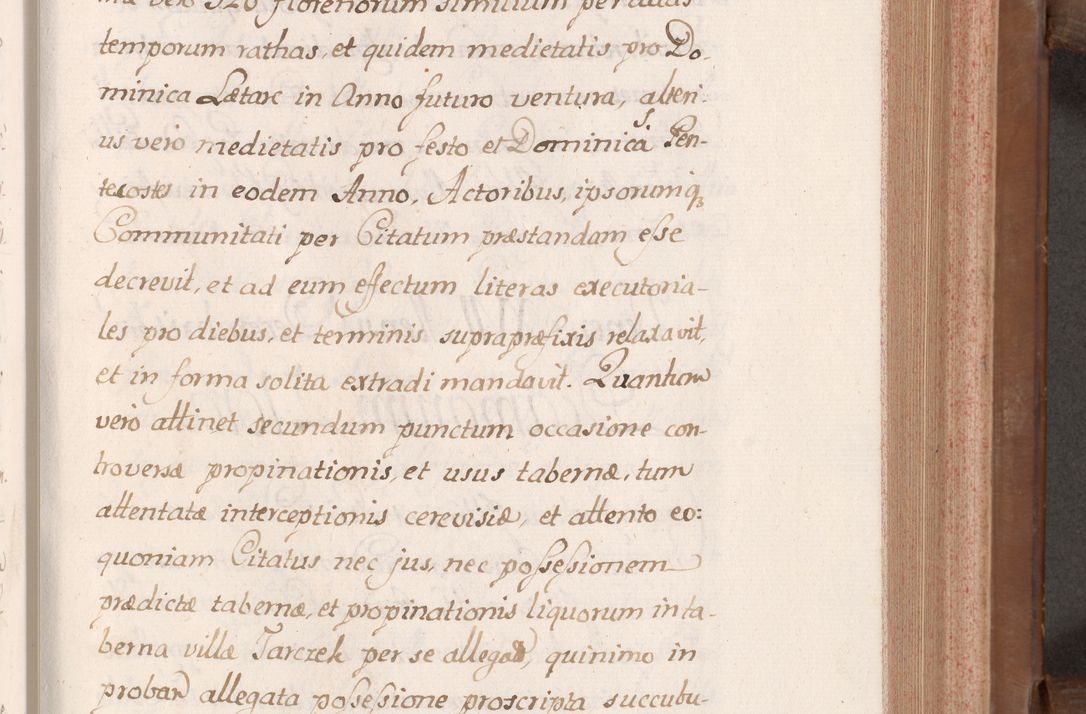 vero 520 florenorum similium per duas
temporum rathas, et quidem medietatis pro Do-
minica Lætare in Anno futuro ventura, alteri-
us vero medietatis pro festo et Dominica s. Pen-
tecostes in eodem Anno, Actoribus, ipsorumq
Communitati per Citatum præstandam esse
decrevit, et ad eum effectum literas executoria-
les pro diebus, et terminis supraprefixis relaxavit,
et in forma solita extradi mandavit. Quantum
vero attinet secundum punctum occasione con-
troversæ propinationis, et usus tabernæ, tum
attentatæ interceptionis cerevisiæ, et attento eo:
quoniam Citatus nec jus, nec possessionem
prædictæ tabernæ, et propinationis liquorum in ta-
berna villæ Tarczek per se allegad, quinimo in
probañ allegata possessione proscripta succubu-